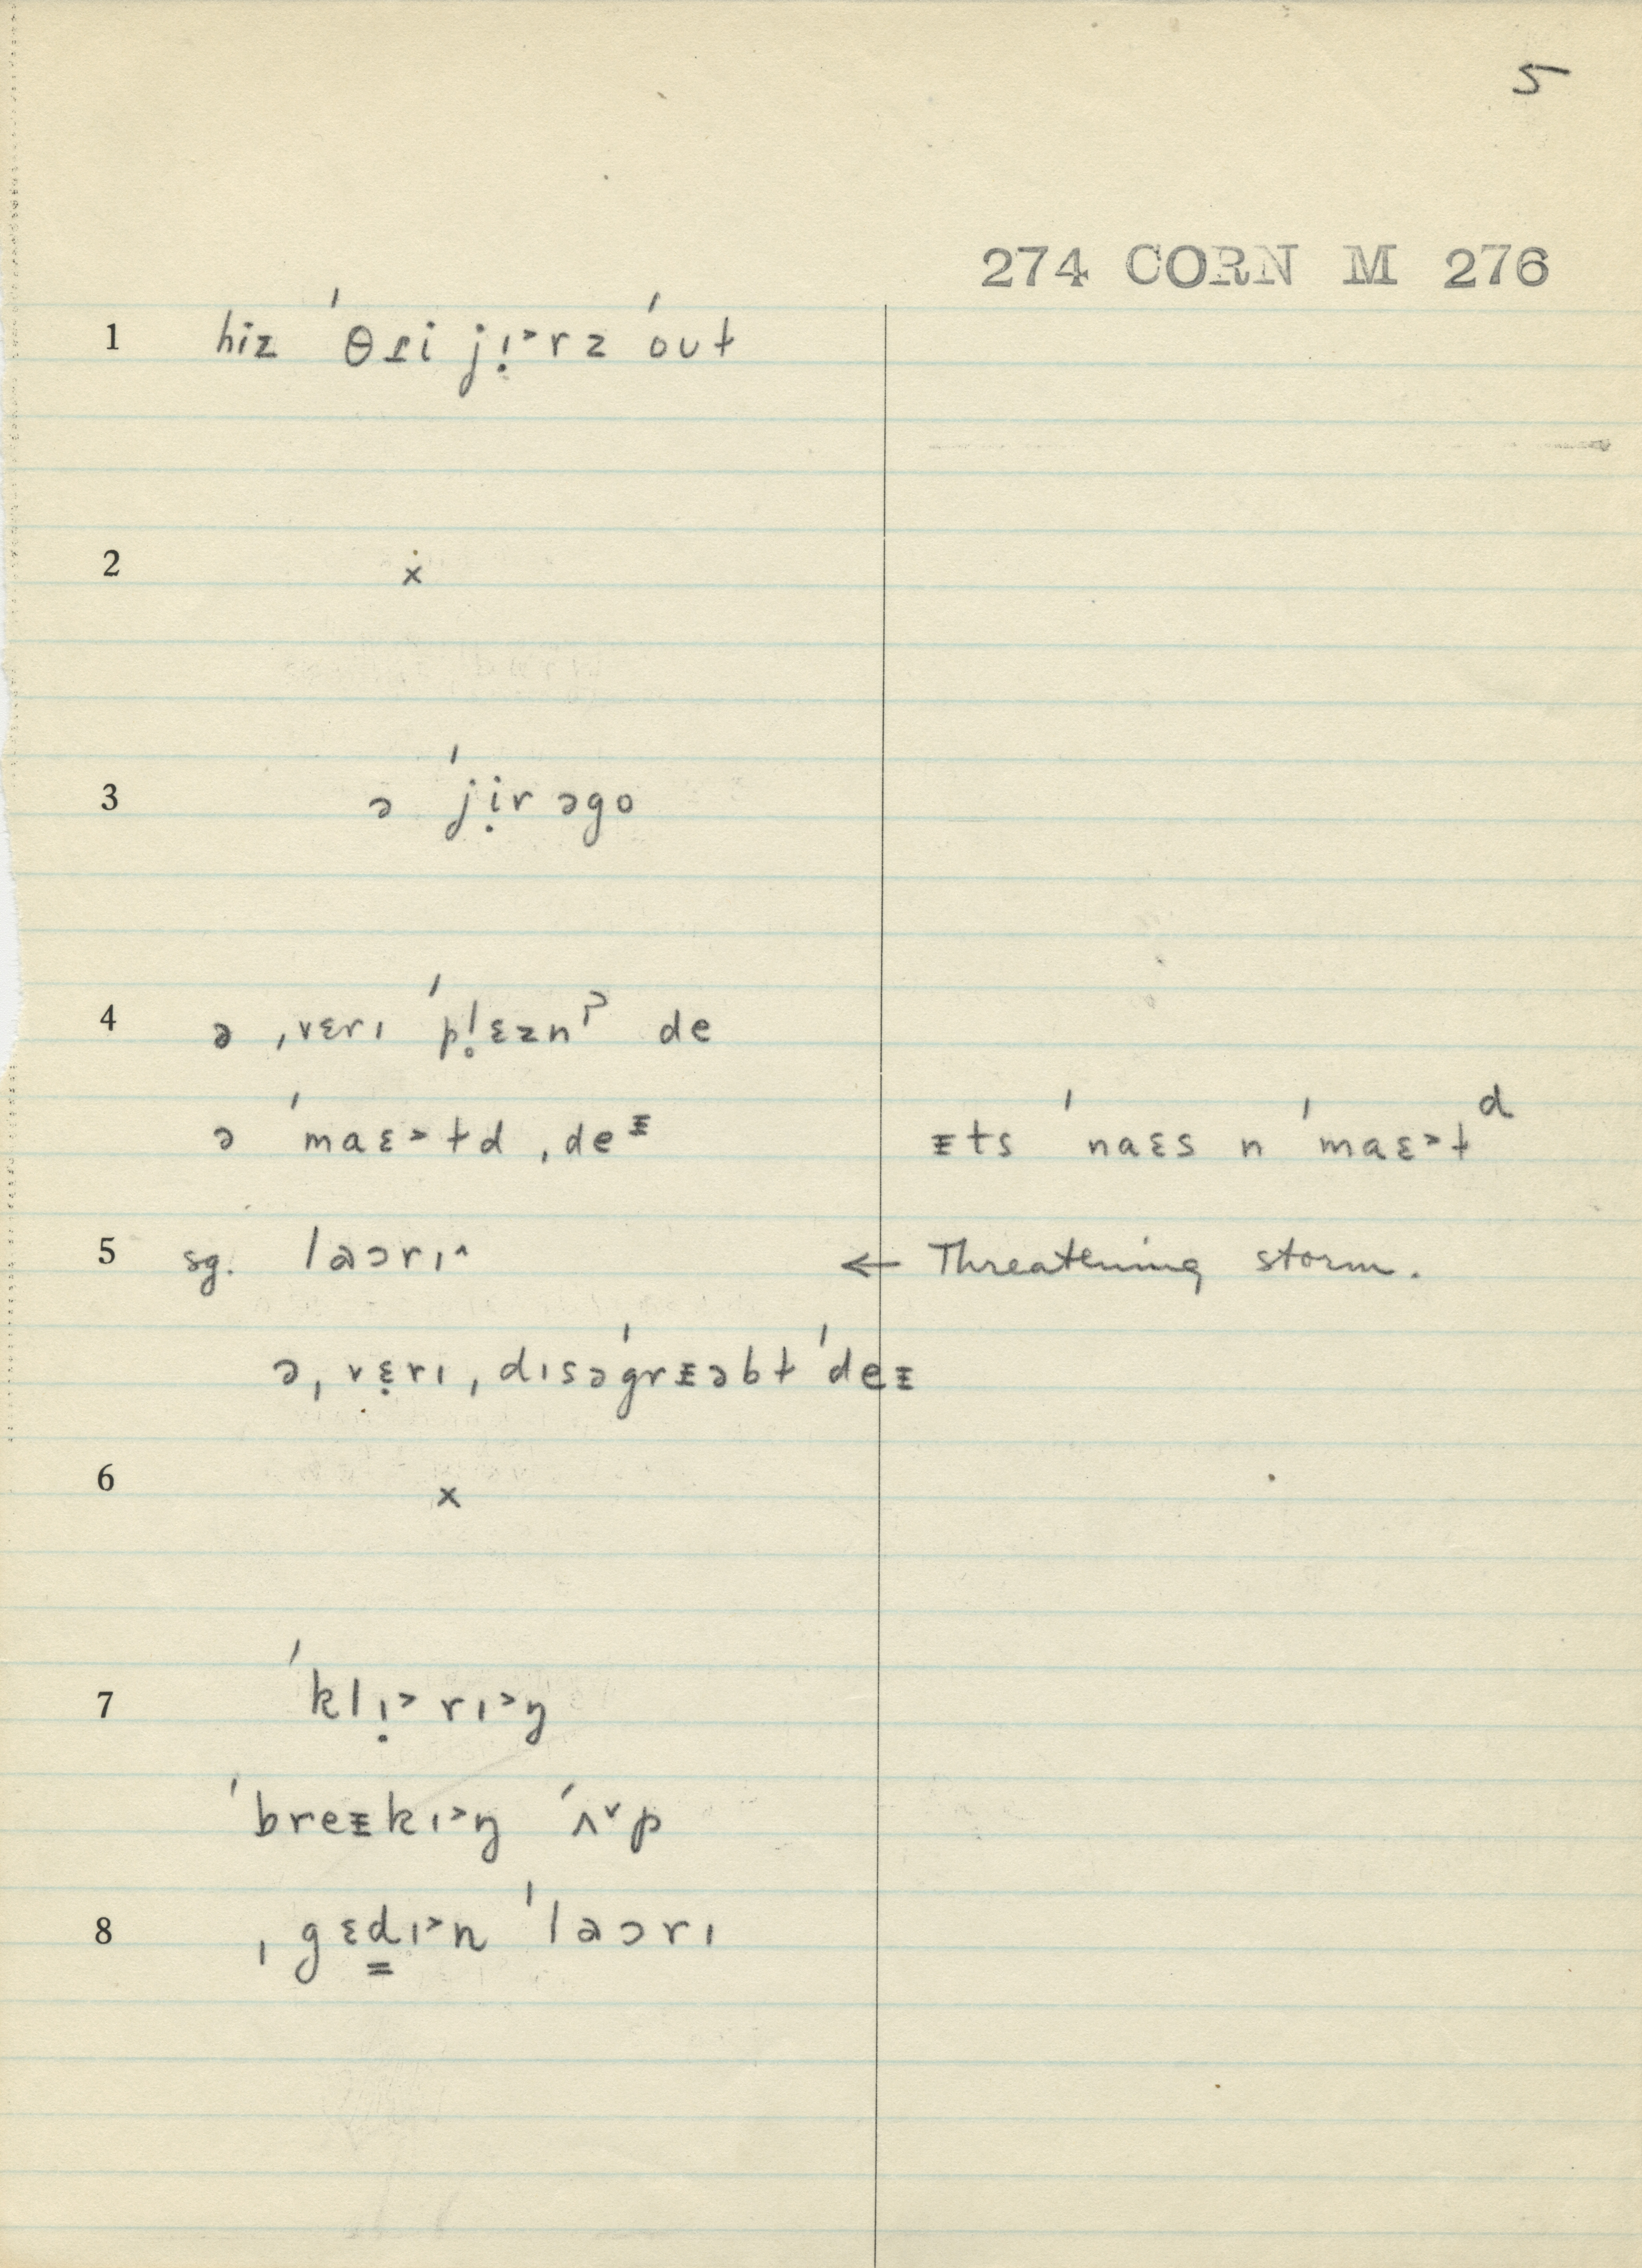 5
274 CORN M 276
1 hiz ˈθɾi jɪ̣˃rz ˈout
2 ẋ
3 ə ˈjịr əgo
4 ə ˌvɛrɪ ˈpl̥ɛznˀ de
ə ˈmaɛ˃ɫd ˌdeᵻ ᵻts ˈnaɛs n ˈmaɛ˃ɫᵈ
5 sg. laɔrɪ^ ← Threatening storm.
ə ˌvɛ̣rɪ ˌdɪsəˈgrᵻəbɫ ˈdeᵻ
6 x
7 ˈklɪ̣˃rɪ˃ŋ
ˈbreᵻkɪ˃ŋ ˈʌ˅p
8 ˌgɛd̳ɪ˃n ˈlaɔrɪ